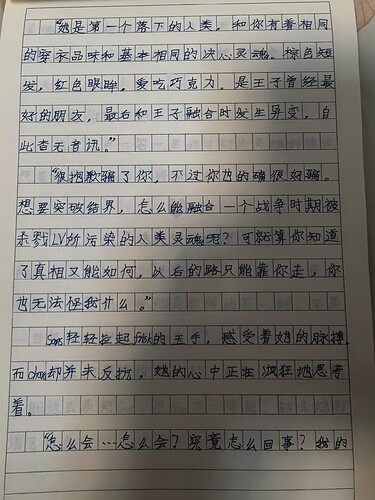 “她是第一个落下的人类，和你有着相同
的穿衣品味和基本相同的决心灵魂。棕色短
发，红色眼睛。爱吃巧克力。是王子曾经最
好的朋友，最后和王子融合时发生异变，自
此杳无音讯。”
“很抱歉骗了你，不过你也的确很好骗。
想要突破结界，怎么能融合一个战争时期被
杀戮LV所污染的人类灵魂呢？可就算你知道
了真相又能如何，以后的路只能靠你走，你
也无法怪我什么。”
Sans轻轻拉起frisk的王手，感受着她的脉搏
而chara却并未反抗，她的心中正在疯狂地思考
着。
“怎么会…怎么会？究竟怎么回事？我的